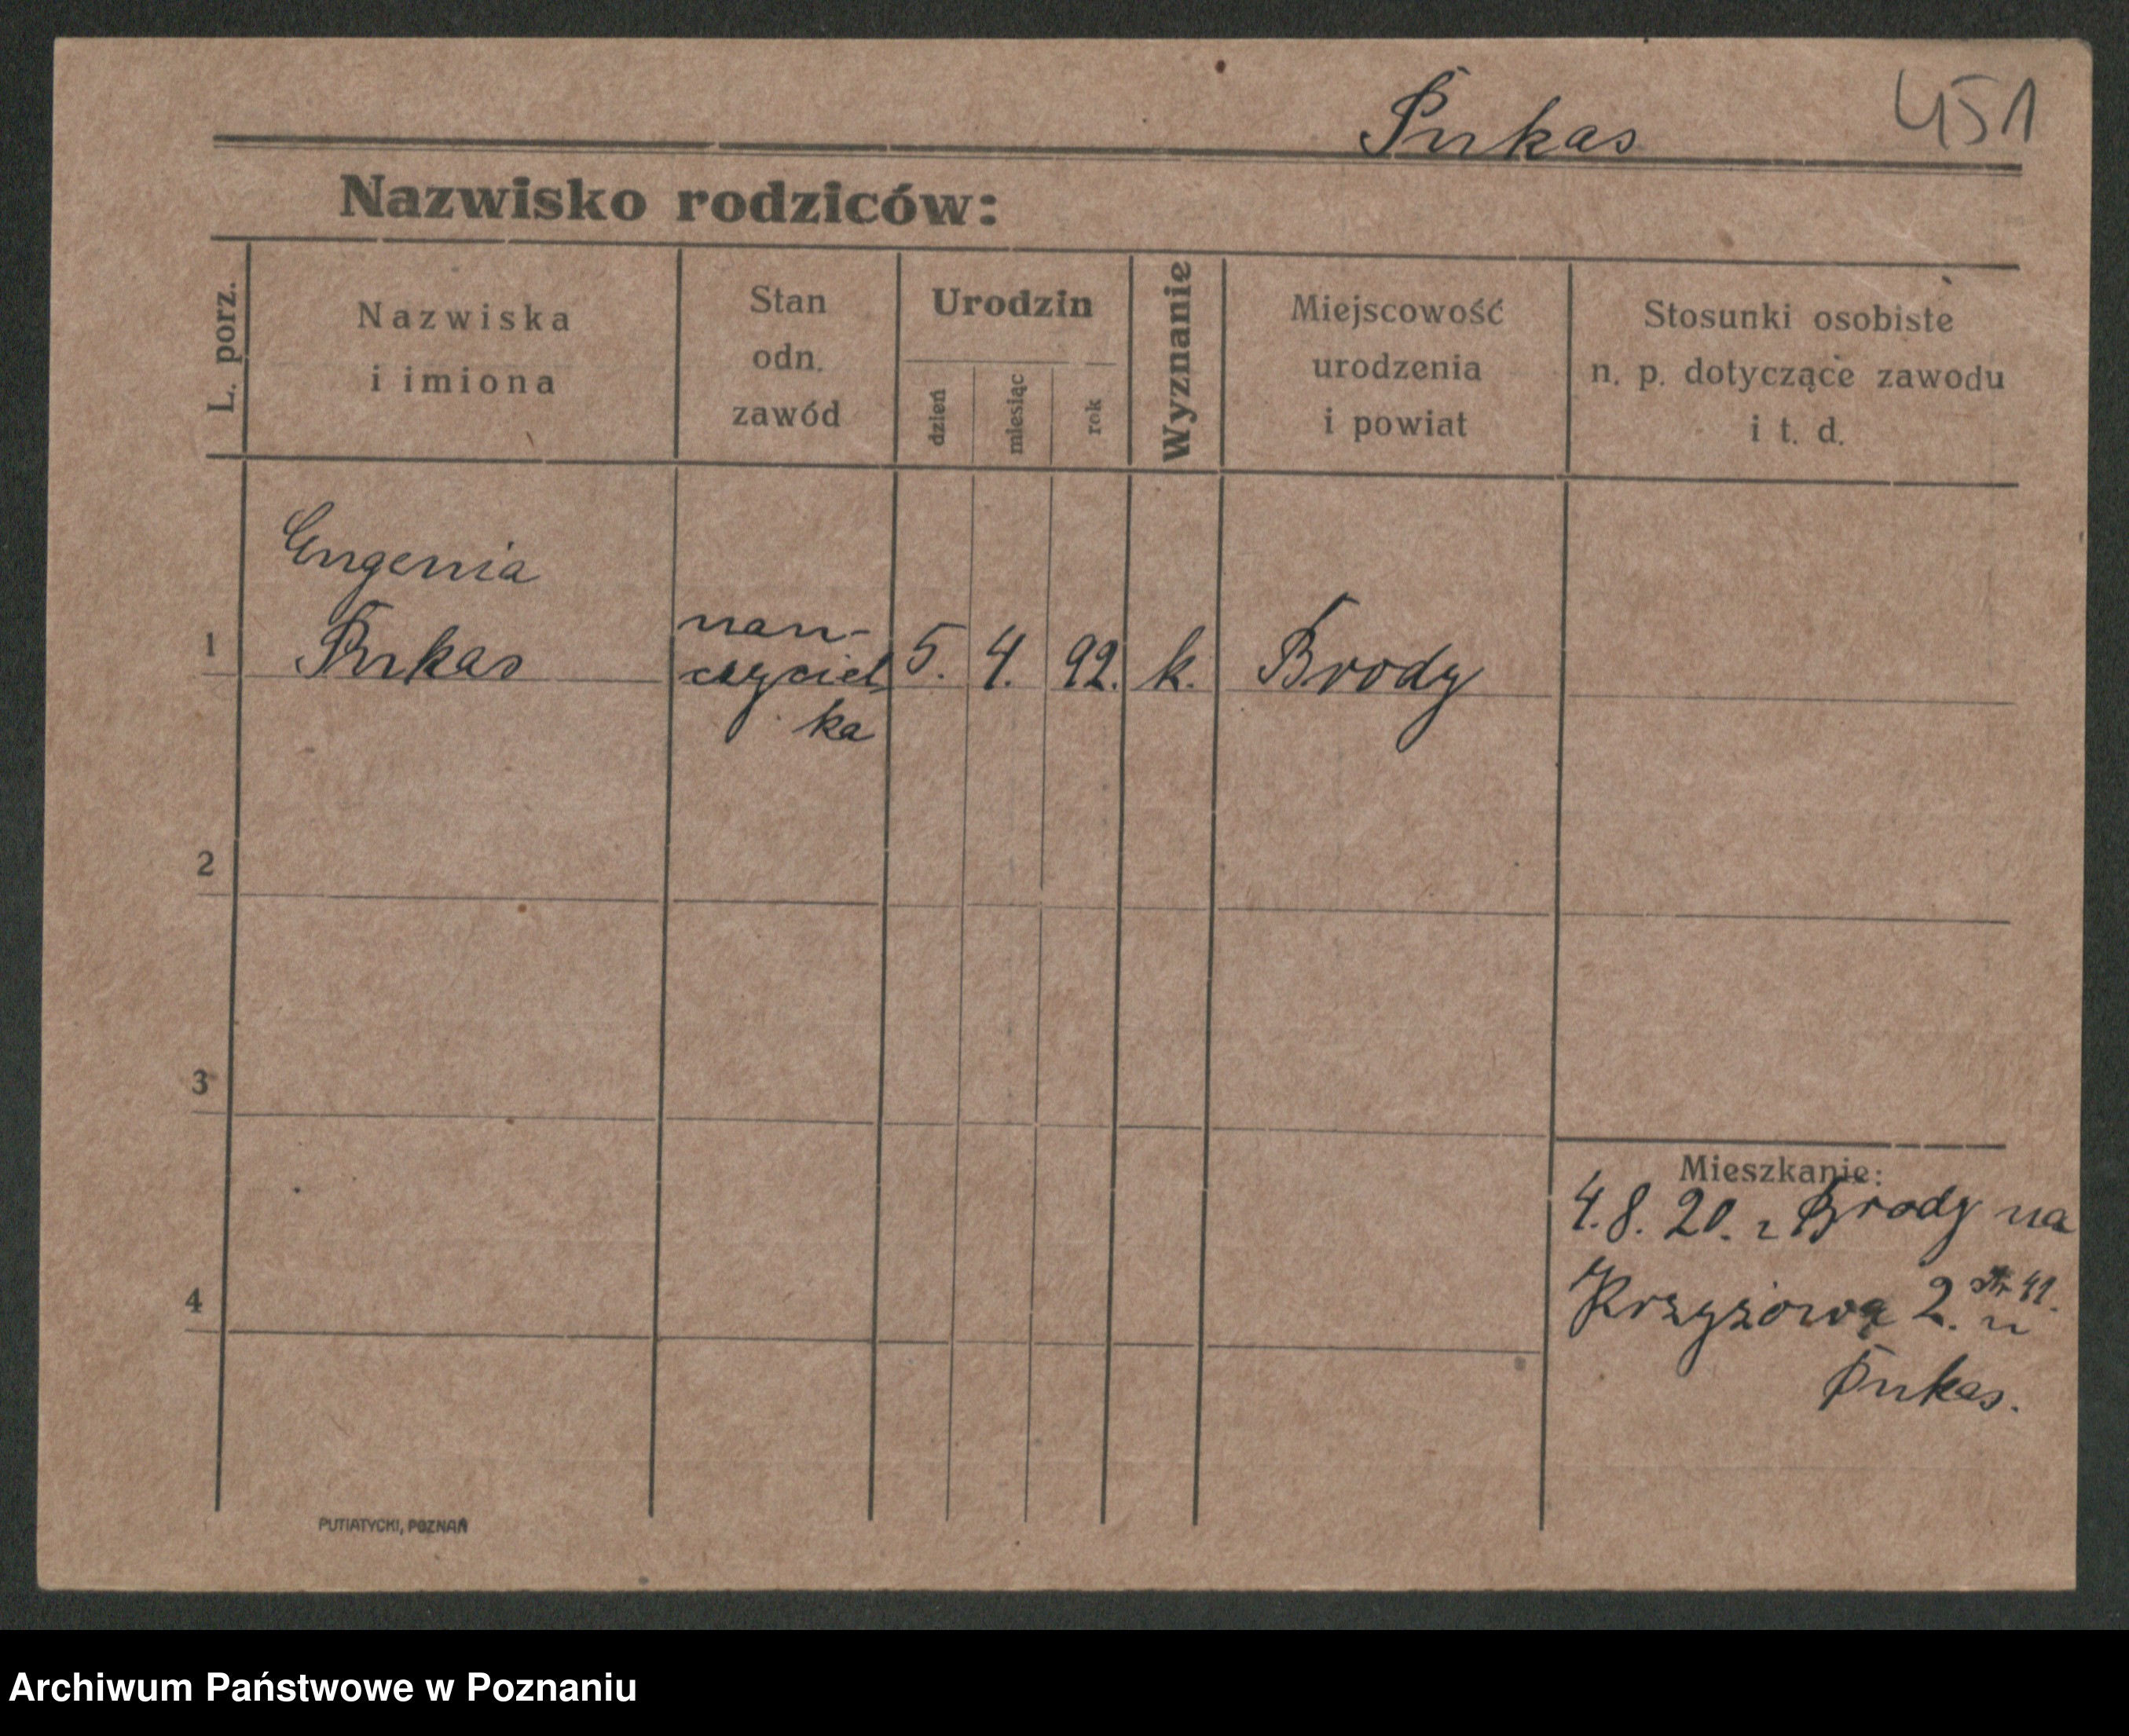 Pukas 451
Nazwisko rodziców:
L. porz.
Nazwiska
i imiona
Stan
odn.
zawód
Urodzin
dzień
miesiąc
rok
Wyznanie
Miejscowość
urodzenia
i powiat
Stosunki osobiste
n. p. dotyczące zawodu
i t. d.
Eugenia
1 Pukas
nau-
czyciel
ka
5. 4. 92. k. Brody
2
3
4
Mieszkanie:
4. 8. 20. z Brody na
Krzyżową 2. u
Pukas.
PUTIATYCKI, POZNAŃ
Archiwum Państwowe w Poznaniu